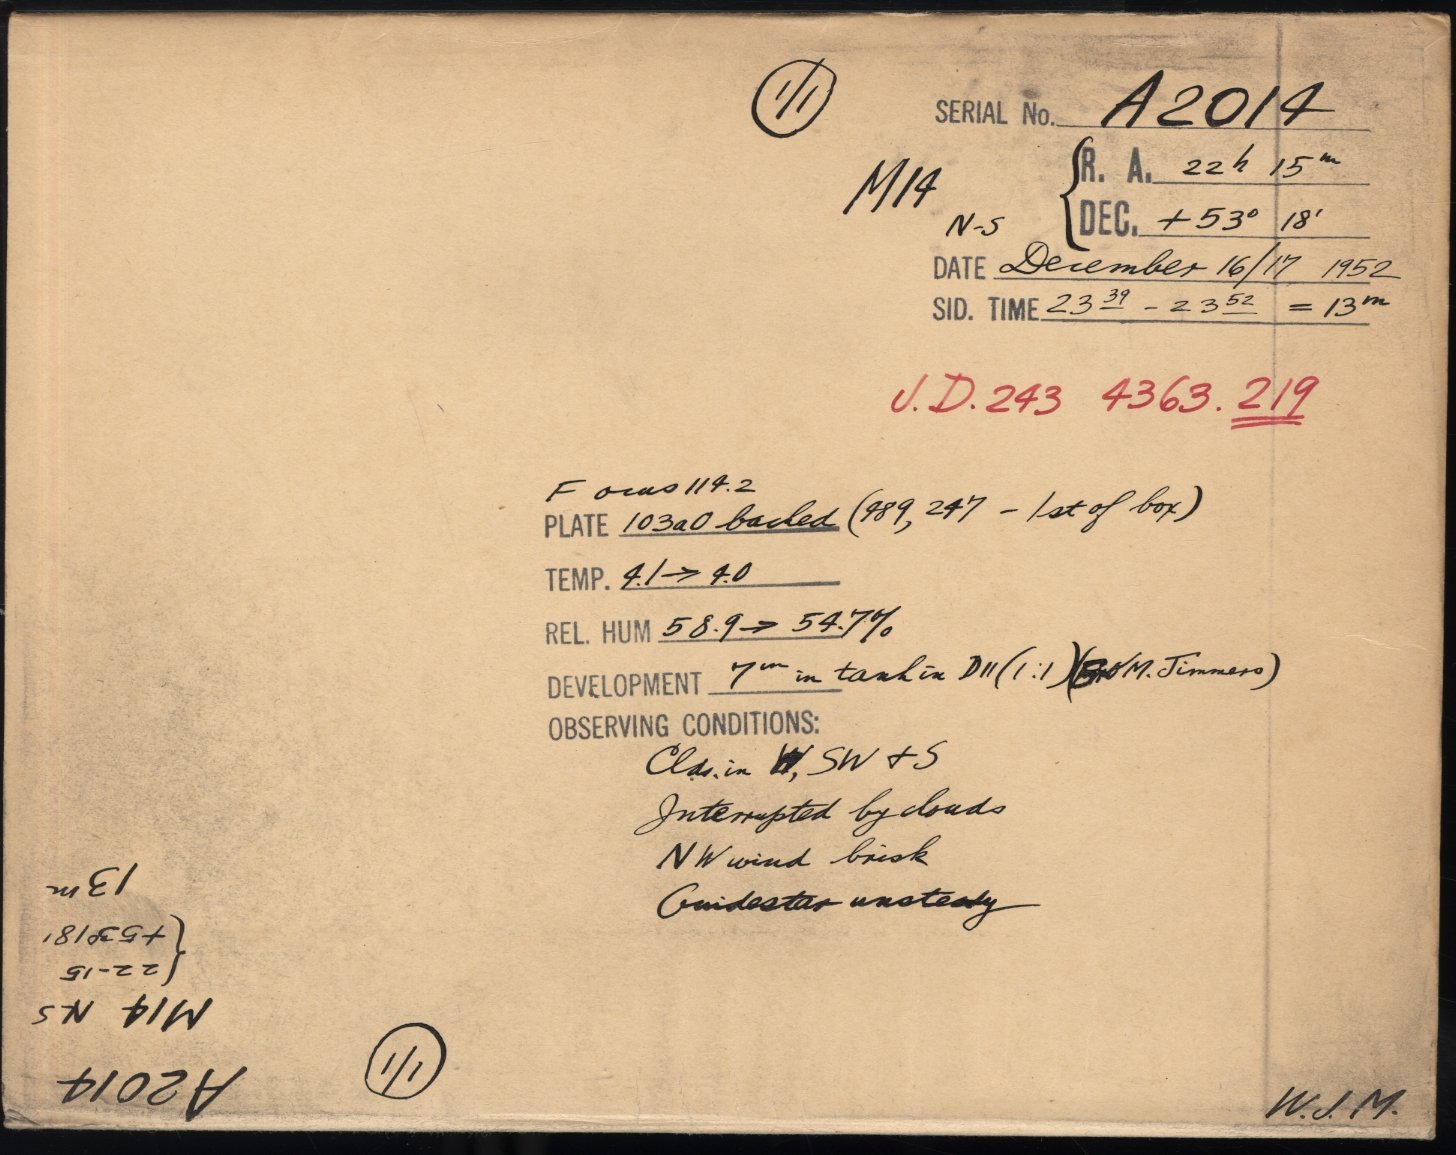 1/1
SERIAL No. A2014
M14 N-S { R. A. 22h 15m
DEC. +53° 18'
DATE December 16/17 1952
SID. TIME 23 39 - 23 52 = 13m
J.D. 243 4363.219
Focus 114.2
PLATE 103aO backed (989, 247 - 1st of box)
TEMP. 4.1 → 4.0
REL. HUM 58.9 → 54.7%
DEVELOPMENT 7m in tank in D11 (1:1) (M. Timmers)
OBSERVING CONDITIONS:
Clds. in W, SW + S
Interrupted by clouds
NW wind brisk
Guidestar unsteady
W.J.M.
1/1
A2014
M14 N-S
{ 22-15
+53° 18'
13m